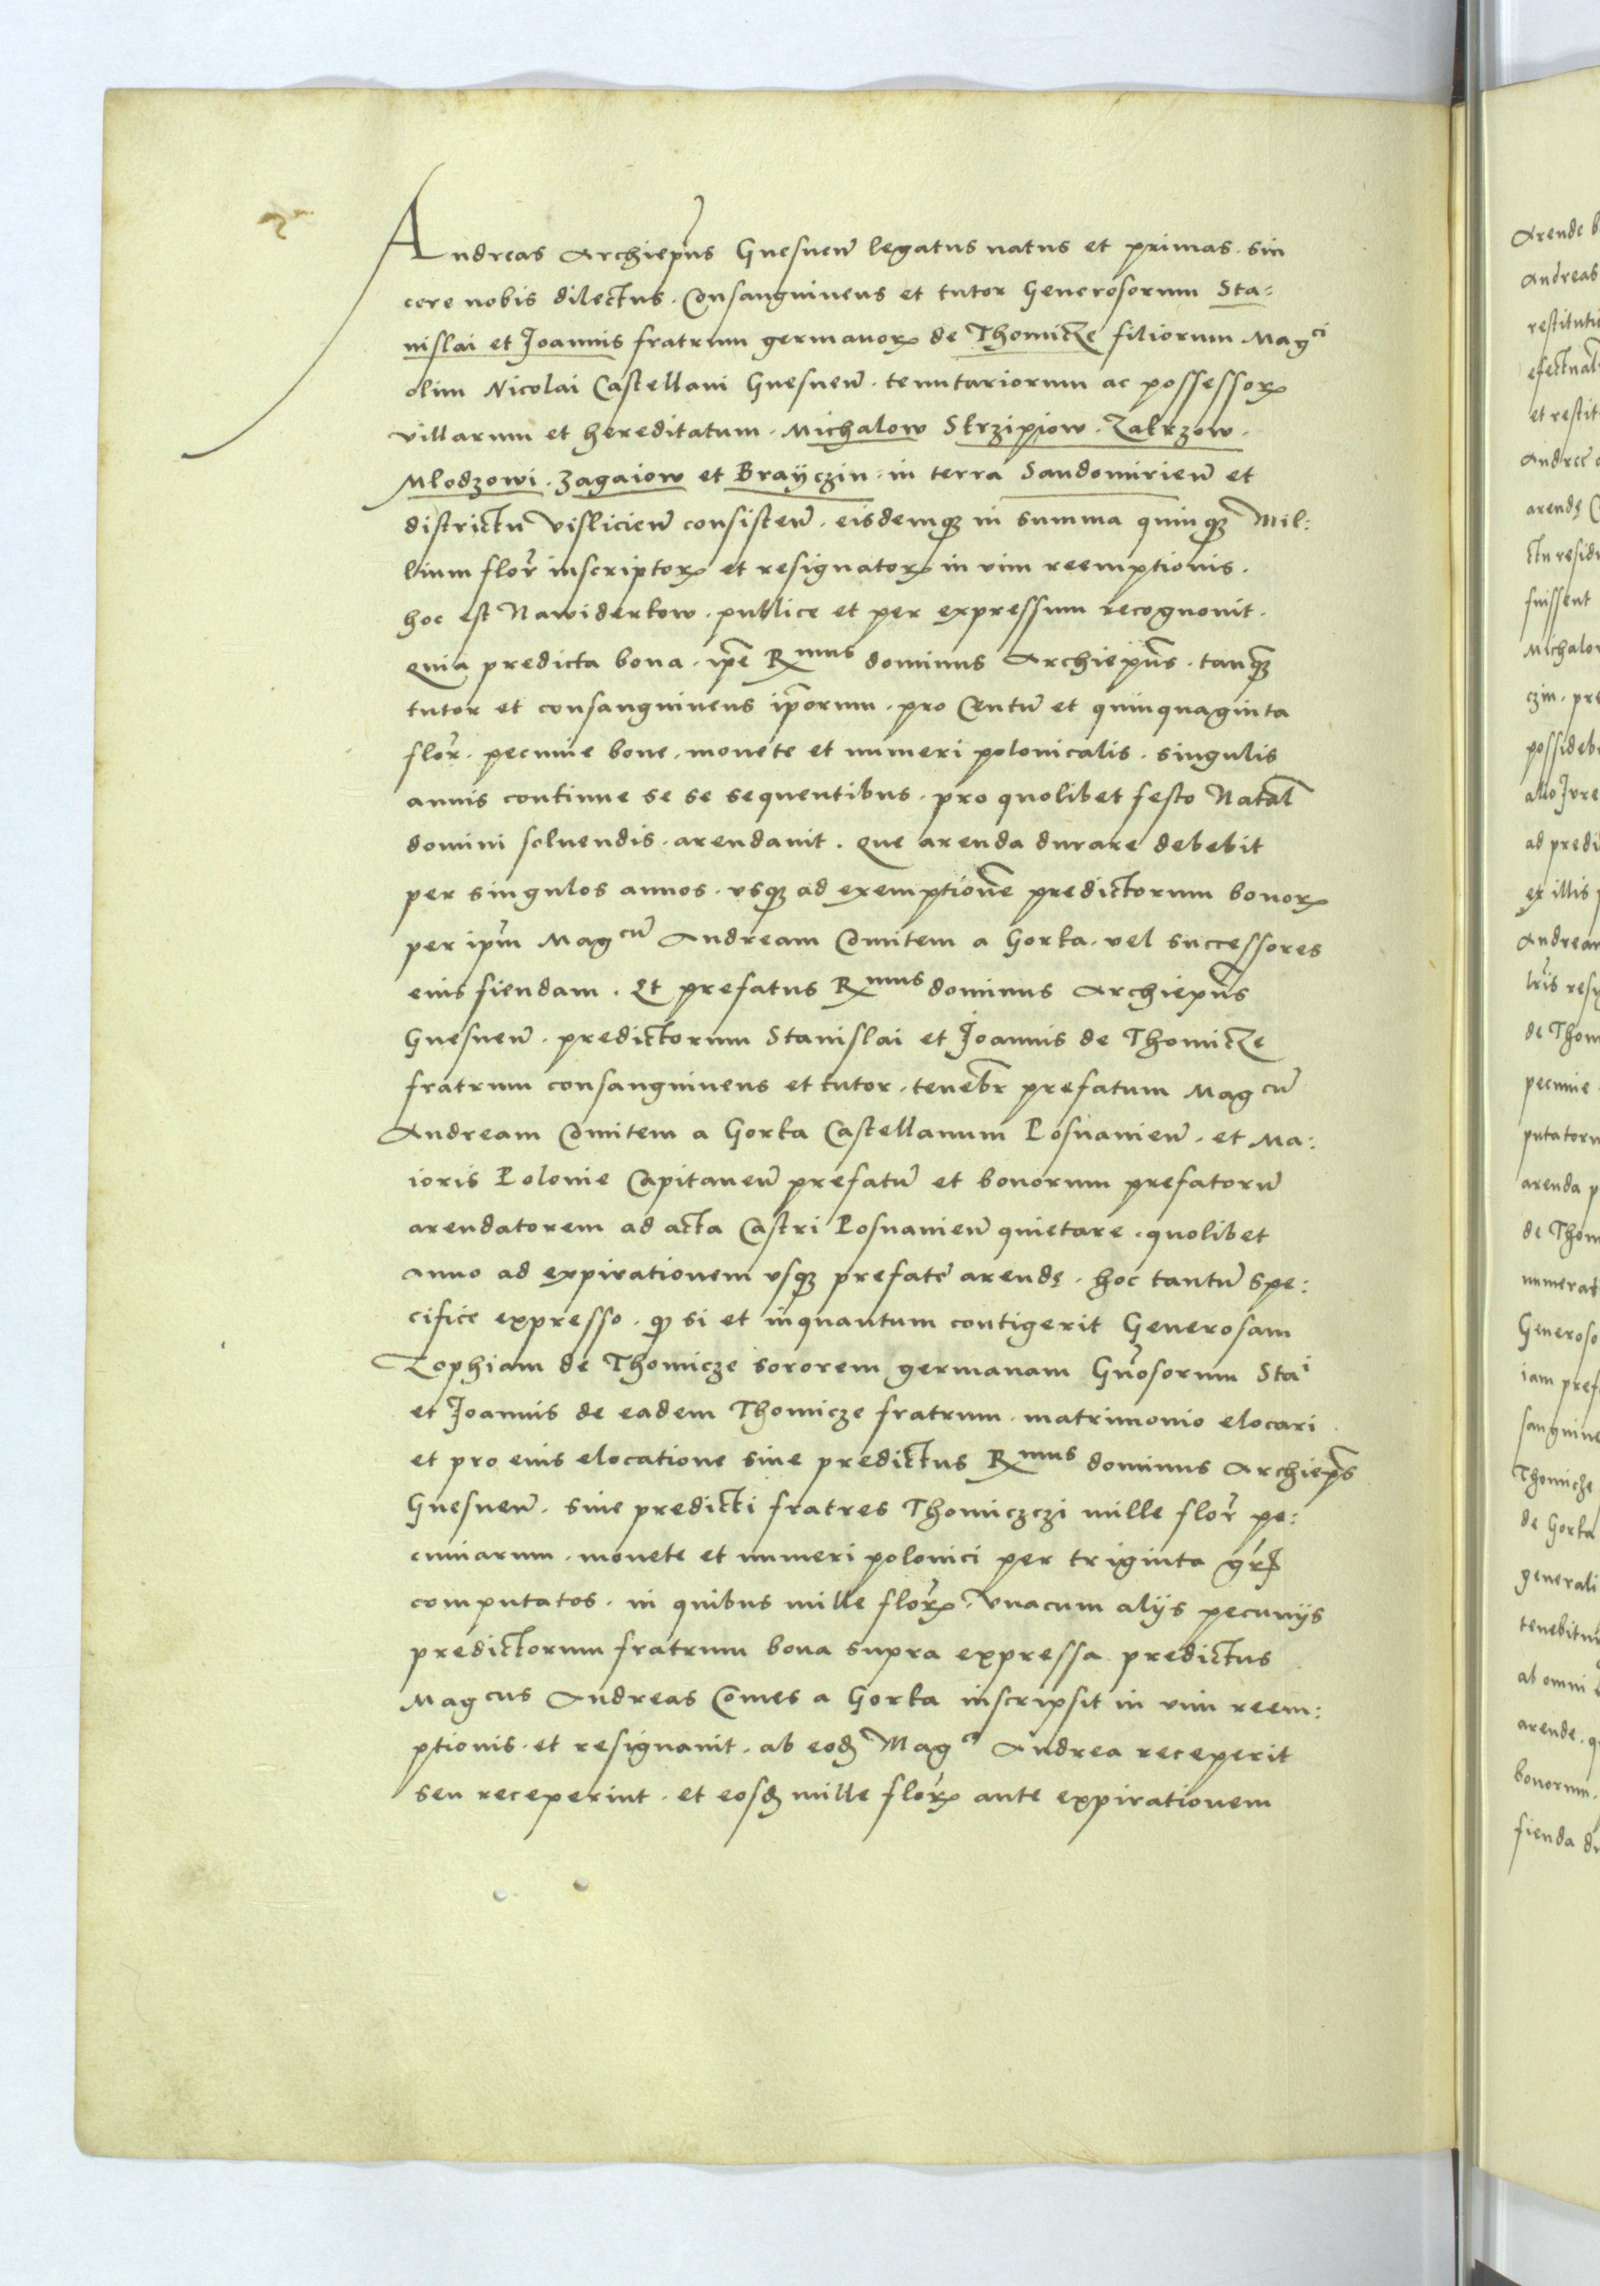 Andreas Archiepũs Gnesneñ legatus natus et primas. sin
cere nobis dilectus. Consanguineus et tutor Generosorum Sta:
nislai et Joannis fratrum germanoꝝ de Thomicze filiorum Magci
olim Nicolai Castellani Gnesneñ. tenutariorum ac possessoꝝ
villarum et hereditatum. Michalow Skrzipiow. Zakrzow.
Mlodzowi. Zagaiow et Brayczin. in terra Sandomirieñ et
districtu Vislicieñ consisteñ. eisdemqꝫ in summa quinqꝫ Mil:
lium flor̃ inscriptoꝝ et resignatoꝝ in vim reemptionis.
hoc est Nawiderkow. publice et per expressum recognouit.
Quia predicta bona. ip̃e Rmus dominus Archiep̃us. tanqꝫ
tutor et consanguineus ip̃orum. pro Centũ et quinquaginta
flor̃. pecunie bone. monete et numeri polonicalis. singulis
annis continue se se sequentibus. pro quolibet festo Natal̃
domini soluendis. arendauit. Que arenda durare debebit
per singulos annos. vsqꝫ ad exemptionẽ predictorum bonoꝝ
per ip̃m Magcũ Andream Comitem a Gorka. vel successores
eius fiendam. Et prefatus Rmus dominus Archiep̃us
Gnesneñ. predictorum Stanislai et Joannis de Thomicze
fratrum consanguineus et tutor. teneb̃r prefatum Magcũ
Andream Comitem a Gorka Castellanum Posnanieñ. et Ma:
ioris Polonie Capitaneũ prefatũ et bonorum prefatorũ
arendatorem ad acta Castri Posnanieñ quietare. quolibet
anno ad expirationem vsqꝫ prefate arendę. hoc tantũ spe:
cifice expresso. ꝙ si et inquantum contigerit Generosam
Zophiam de Thomicze sororem germanam Gñosorum Stai
et Joannis de eadem Thomicze fratrum. matrimonio elocari
et pro eius elocatione siue predictus Rmus dominus Archiep̃s
Gnesneñ. siue predicti fratres Thomiczczi mille flor̃ pe:
cuniarum. monete et numeri polonici per triginta gr̃
computatos. in quibus mille flor̃ꝝ. vnacum alijs pecunijs
predictorum fratrum bona supra expressa predictus
Magcus Andreas Comes a Gorka inscripsit in vim reem:
ptionis. et resignauit. ab eođ Magco Andrea receperit
seu receperint. et eosđ mille flor̃ꝝ ante expirationem